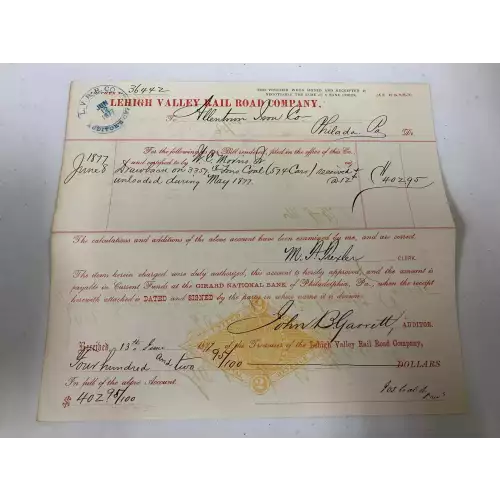 L.V.R.R. CO.
JUN
1877
AUDITORS
36442
THIS VOUCHER WHEN SIGNED AND RECEIPTED IS
NEGOTIABLE THE SAME AS A BANK CHECK.
LEHIGH VALLEY RAIL ROAD COMPANY,
To Allentown Iron Co
Philada Pa Dr.
1877 For the following Bill rendered, filed in the office of this Co.
and certified to by W. C. Morris Jr
June 8 Drawback on 3357 Tons Coal (574 Cars) received &
unloaded during May 1877. @ 12¢ $402.95
The calculations and additions of the above account have been examined by me, and are correct.
CLERK.
The items herein charged were duly authorized, this account is hereby approved, and the amount is
payable in Current Funds at the GIRARD NATIONAL BANK of Philadelphia, Pa., when the receipt
herewith attached is DATED and SIGNED by the party in whose name it is drawn.
John B Garrett AUDITOR.
Received, 13th June 1877 of the Treasurer of the Lehigh Valley Rail Road Company,
Four hundred and two 95/100 DOLLARS
In full of the above Account.
$ 402 95/100